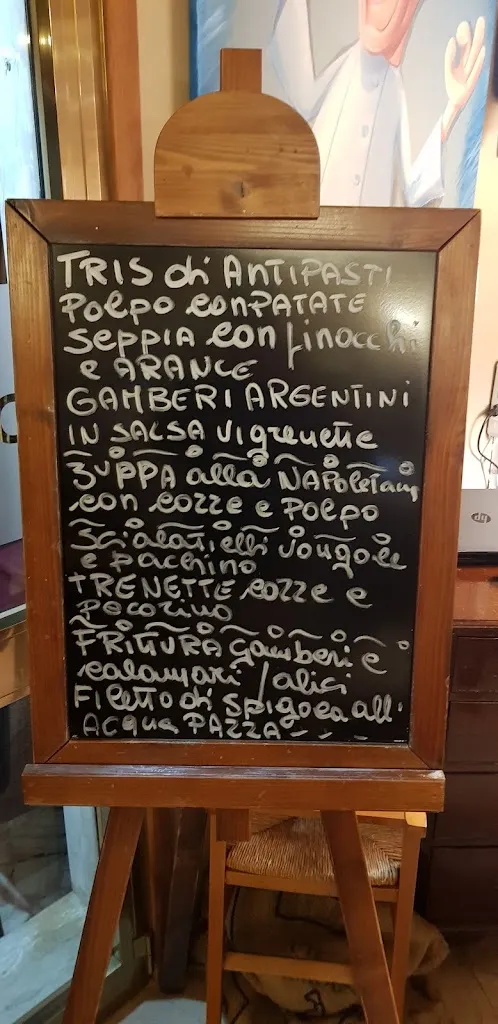 TRIS di ANTIPASTI
Polpo conPATATE
Seppia con finocchi
e ARANCE
GAMBERI ARGENTINI
IN SALSA vigrenette
ZUPPA alla NAPoletana
con cozze e Polpo
Scialatielli vongole
e pachino
TRENETTE cozze e
pecorino
FRITTURA gamberi e
calamari / alici
Filetto di Spigola all'
ACQua PAZZA---
hp